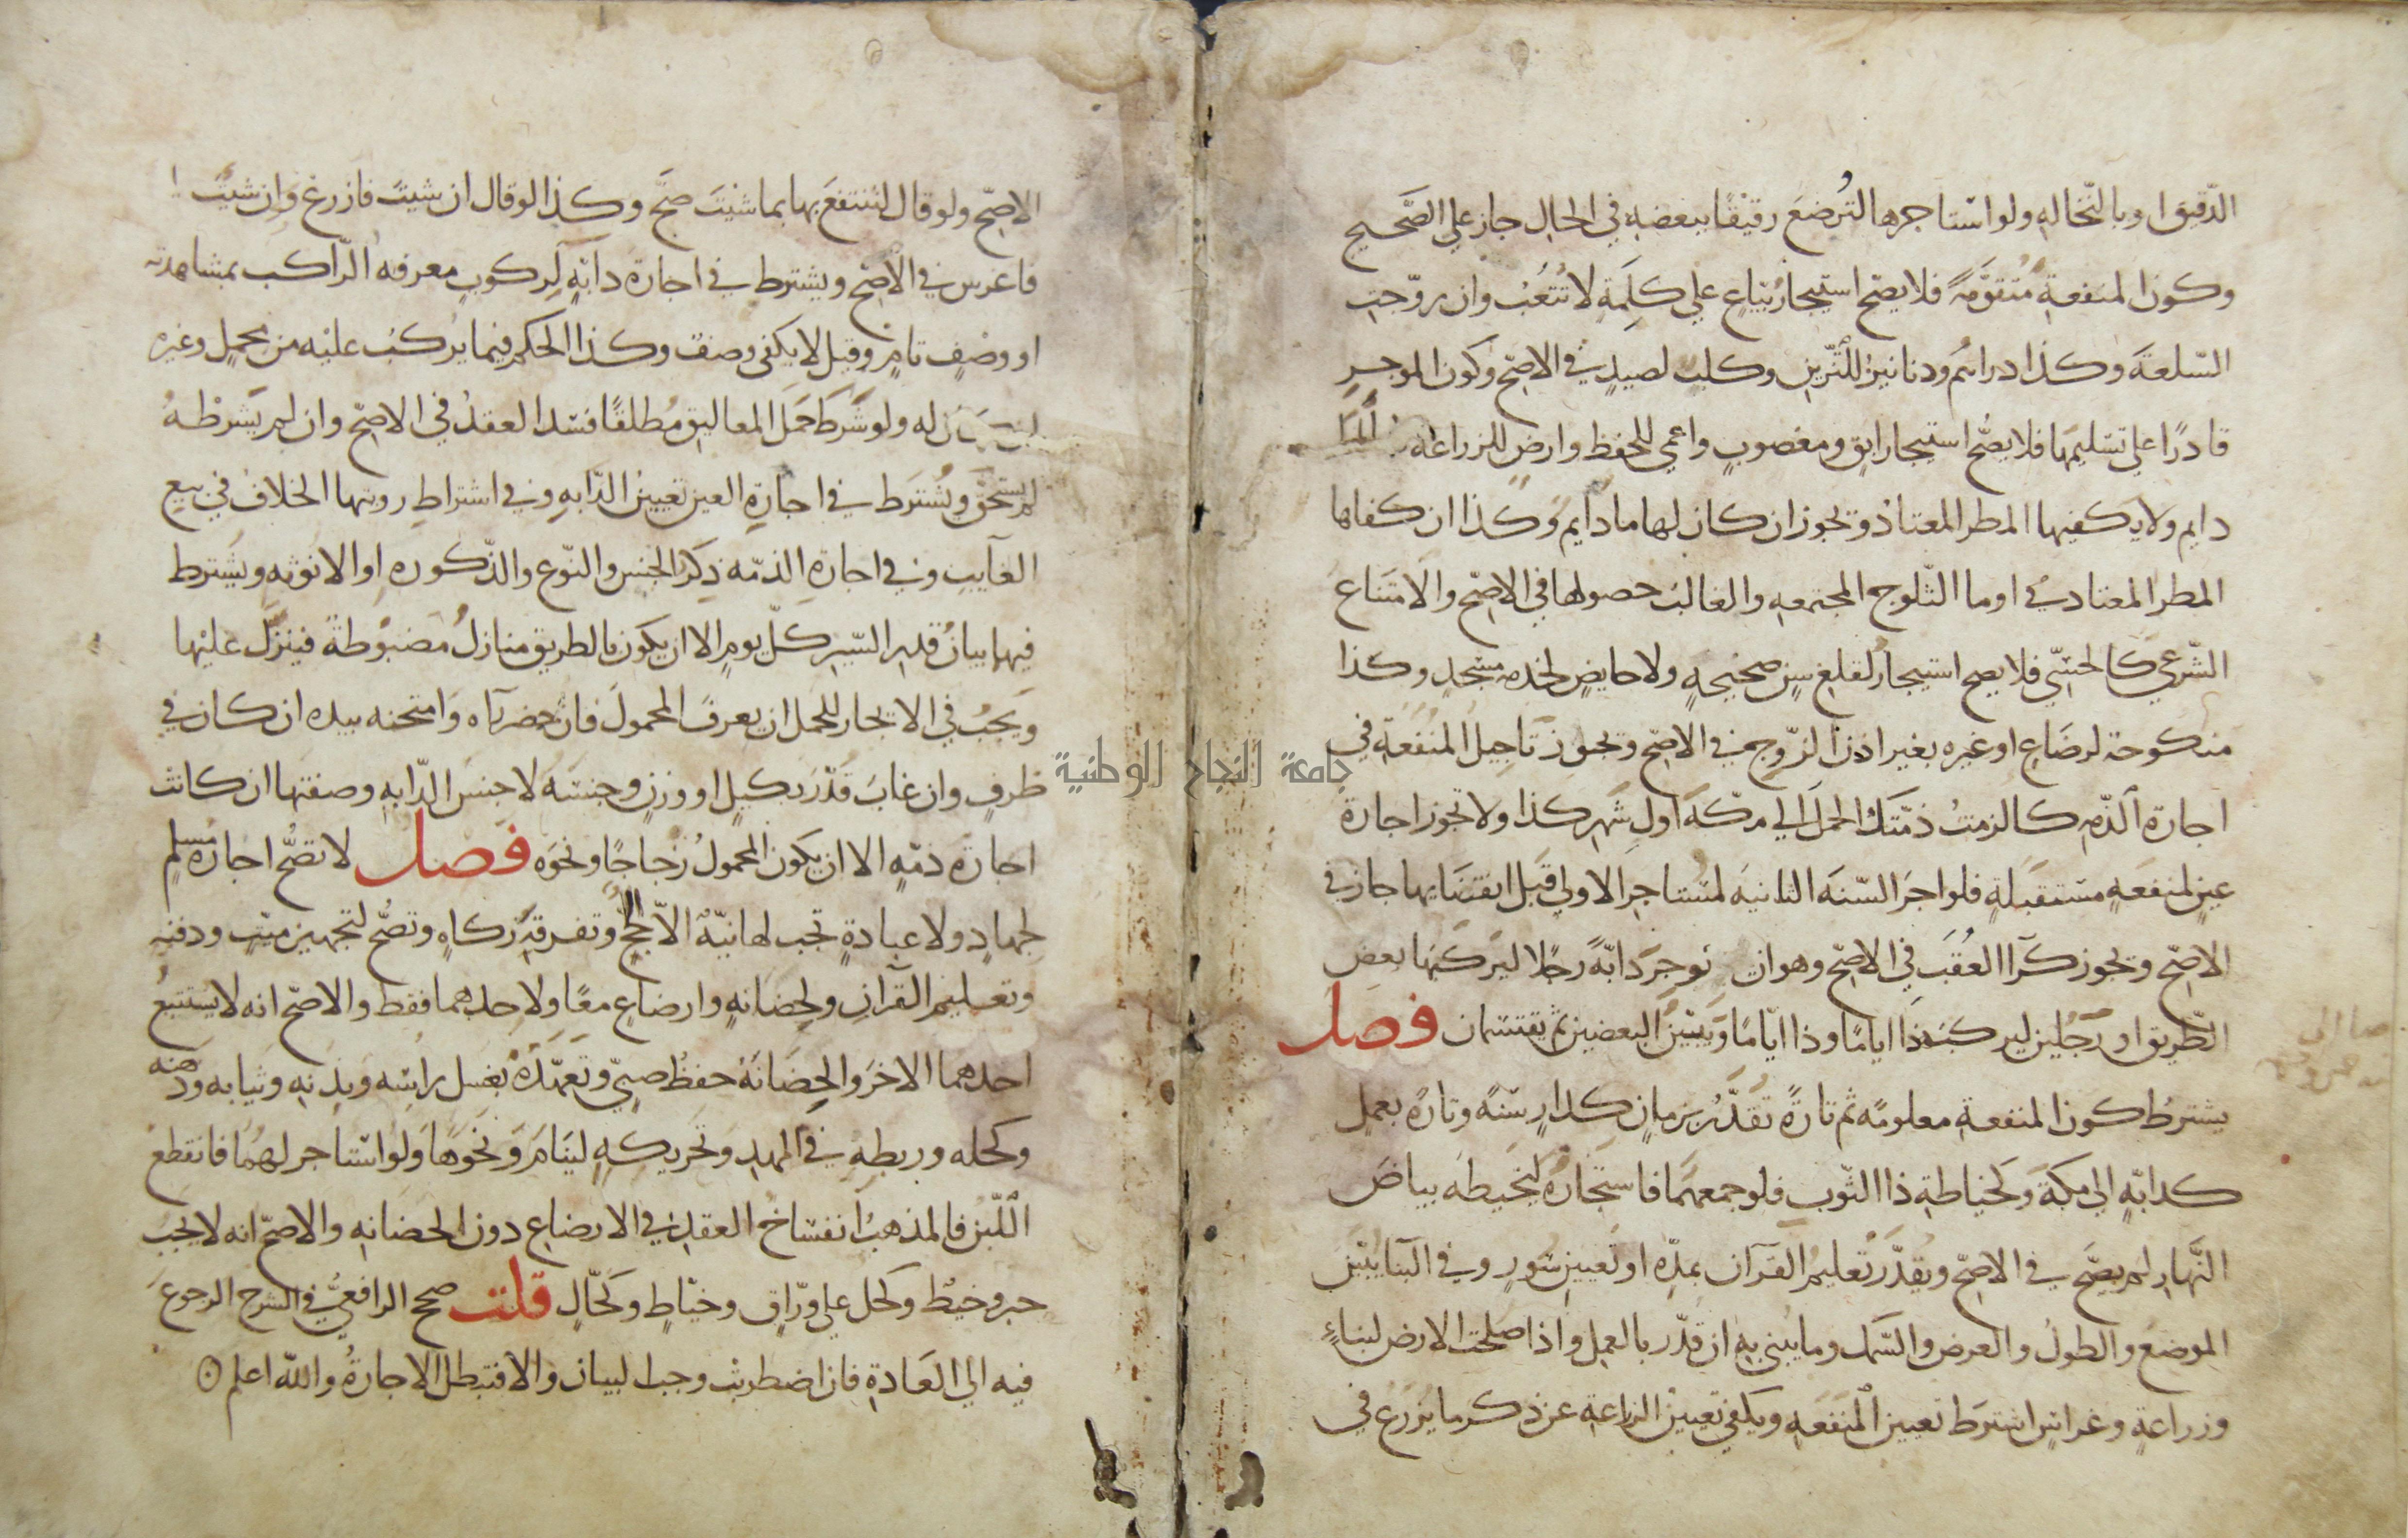 الدّقيق او بالنّخاله ولو استاجرها لتُرضعَ رقيقًا ببعضه في الحال جاز علي الصّحيح
وكون المنفعةِ مُتَقوَّمَةً فلا يصحّ استيجارُ بيّاعٍ علي كلِمَةٍ لا تُتعِبُ وان روّجتِ
السّلعةَ وكذا دراهمُ ودنانيرُ للتّزيينِ وكلب لصيدٍ في الاصحّ وكون الموجرِ
قادرًا علي تسليمها فلا يصحّ استيجار ابقٍ ومغصوبٍ واعمي للحفظ وارضٍ للزراعة
دايم ولا يكفيها المطر المعتاد وتجوز ان كان لها ما دايم وكذا ان كفاها
المطر المعتاد او ما الثّلوج المجتمعه والغالبُ حصولها في الاصحّ والامتناع
الشّرعي كالحسّي فلا يصح استيجارٌ لقلع سنٍ صحيحةٍ ولا حايضٍ لخدمة مسجدٍ وكذا
منكوحة لرضاعٍ او غيره بغير اذن الزّوج في الاصحّ وتجوز تاجيل المنفعة في
اجارة الذّمه كالزمتُ ذمّتَك الحملَ الي مكّة اول شهر كذا ولا تجوز اجارة
عينٍ لمنفعةٍ مستقبلةٍ فلو اجَرَ السّنة الثانية لمستاجر الاولي قبل انقضايها جاز في
الاصحّ وتجوز كرا العُقَبَ في الاصحّ وهو ان توجِرَ دابّةً رجلا ليركبها بعض
الطّريق او رجلين ليركب ذا ايامًا وذا ايّامًا ويبيّنُ البعضين ثمّ يقتسمان فصل
يشترطُ كون المنفعة معلومةً ثم تارةً تقدّرُ بزمانٍ كدارٍ سنةً وتارةً بعملٍ
كدابّةٍ الي مكّةَ وكخياطةِ ذا الثّوب فلو جمعهما فاستجارهُ ليخيطه بياضَ
النّهارِ لم يصحّ في الاصحّ ويقدّر تعليمُ القرآن بمدّةٍ او تعيينِ سُورٍ وفي البنا يبيّن
الموضع والطولُ والعرض والسّمك وما يبني به ان قدّر بالعملِ واذا صلحت الارض لبناءٍ
وزراعةٍ وغراسٍ اشترط تعيين المنفعةِ ويكفي تعيين الزراعة عن ذكر ما يزرع في
الاصحّ ولو قال لتنتفعَ بها بما شيتَ صحّ وكذا لو قال ان شيتَ فازرع وان شيتَ
فاغرس في الاصحّ ويشترط في اجارة دابّةٍ لركوبٍ معرفةُ الرّاكب بمشاهدة
او وصفٍ تامٍ وقيل لا يكفي وصفٌ وكذا الحكم فيما يركب عليه من محملٍ وغيره
له ولو شرط حمل المعاليق مُطلقًا فسَد العقدُ في الاصحّ وان لم يشرطهُ
لم يستحقّ ويُشترط في اجارة العين تعيين الدّابه وفي اشتراطِ رويتها الخلاف في بيع
الغايب وفي اجارة الذمّه ذكرُ الجنس والنّوع والذّكوره او الانوثه ويُشترط
فيهما بيانُ قدرِ السّير كلّ يومٍ الا ان يكون بالطريق منازلُ مضبوطةٌ فينزّل عليها
ويجبُ في الايجار للحمل ان يعرف المحمولَ فان حضر رآه وامتحنه بيده ان كان في
ظرفٍ وان غابَ قُدّر بكيلٍ او وزنٍ وجنسَه لا جنسَ الدّابه وصفتها ان كانت
اجارة ذمّةٍ الا ان يكون المحمولُ زجاجًا ونحوَه فصل لا تصحّ اجارةُ مسلمٍ
لجهادٍ ولا عبادةٍ تجب لها نيّة الّا الحجّ وتفرقة زكاةٍ وتصحّ لتجهيز ميّتٍ ودفنهِ
وتعليم القرآن ولحضانةٍ وارضاعٍ معًا ولاحدهما فقط والاصحّ انه لا يستتبعُ
احدهما الاخرَ والحضانةُ حفظُ صبيّ وتعهّدُهُ بغسل راسِه وبدنه وثيابه ودهنه
وكحله وربطه في المهد وتحريكه لينامَ ونحوها ولو استاجر لهما فانقطع
اللّبن فالمذهبُ انفساخ العقد في الارضاع دون الحضانه والاصحّ انه لا يجب
حبر وخيطٌ وكحل علي ورّاقٍ وخيّاطٍ وكحّالٍ قلت صحح الرافعيّ في الشرح الرجوعَ
فيه الي العَادةِ فان اضطربت وجب البيان والا فتبطل الاجارةُ والله اعلم
جامعة النجاح الوطنية